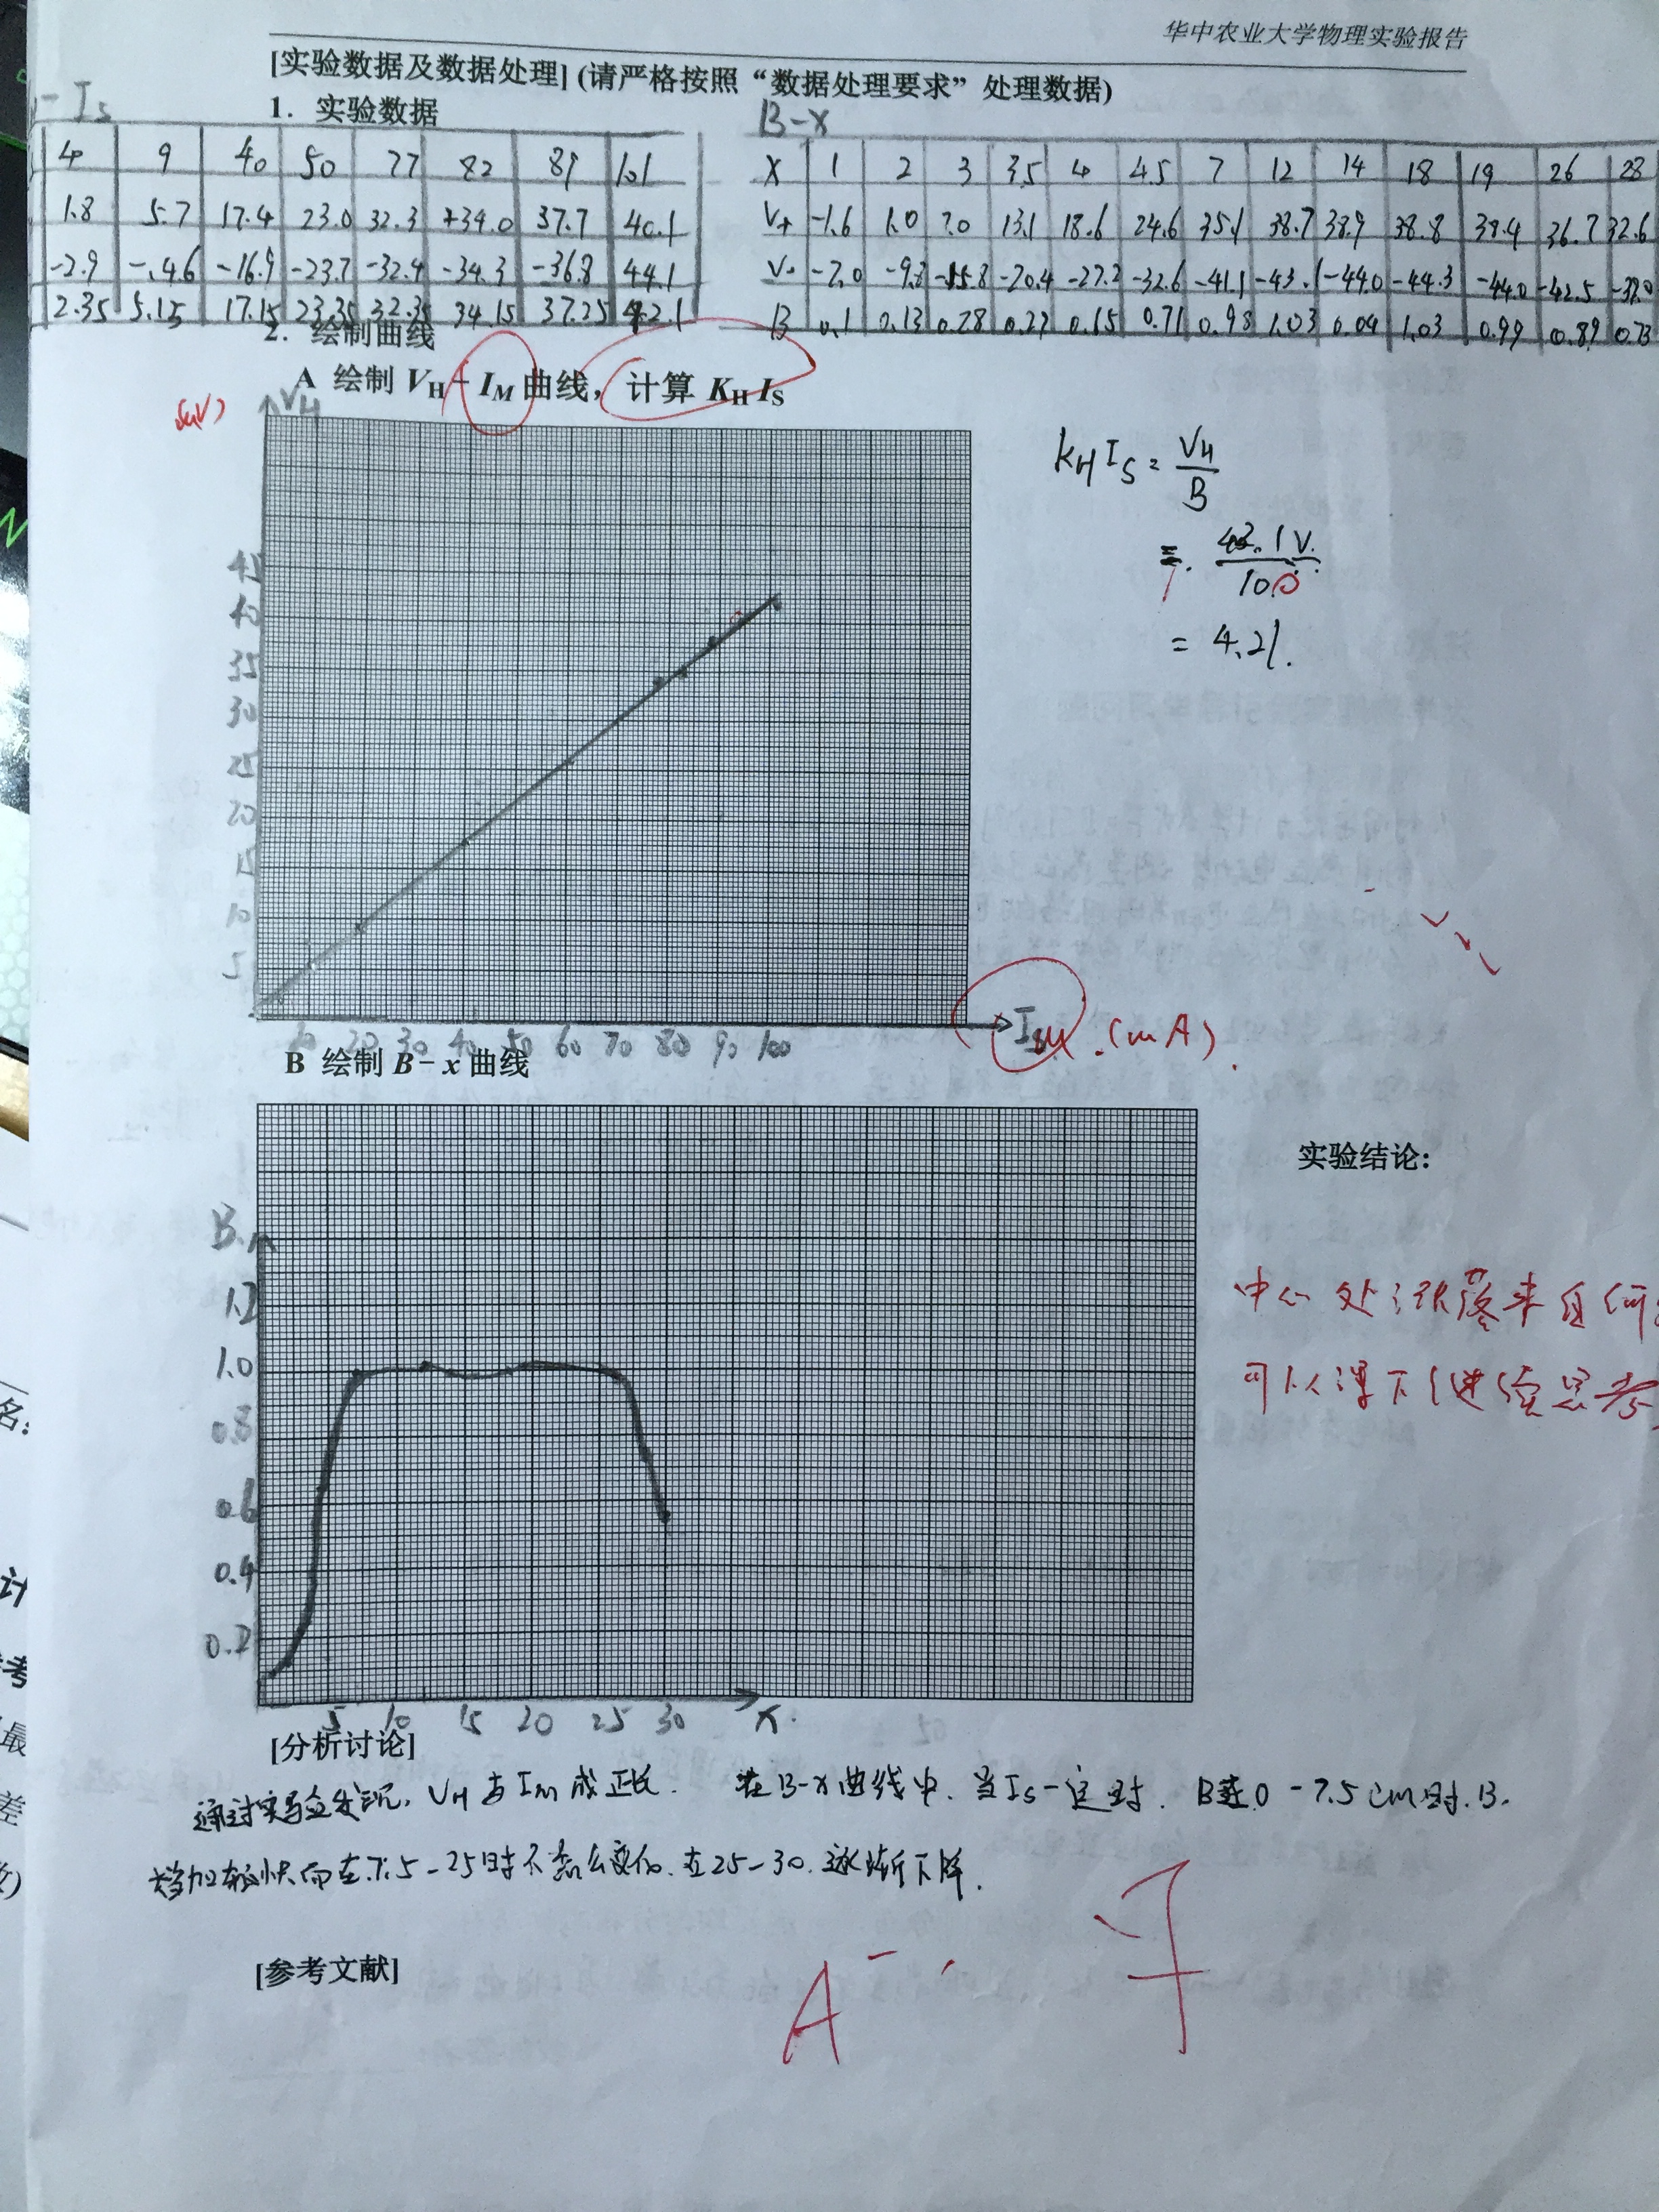 华中农业大学物理实验报告
[实验数据及数据处理] (请严格按照“数据处理要求”处理数据)
1. 实验数据
-Is
4 9 40 50 77 82 89 101
1.8 5.7 17.4 23.0 32.3 +34.0 37.7 40.1
-2.9 -.4.6 -16.9 -23.7 -32.4 -34.3 -36.8 44.1
2.35 5.15 17.15 23.35 32.35 34.15 37.25 42.1
B-X
X 1 2 3 3.5 4 4.5 7 12 14 18 19 26 28
V+ -1.6 1.0 7.0 13.1 18.6 24.6 35.1 38.7 38.9 38.8 38.4 36.7 32.6
V- -7.0 -9.8 -15.8 -20.4 -27.2 -32.6 -41.1 -43.1 -44.0 -44.3 -44.0 -42.5 -38.0
B 0.1 0.13 0.28 0.27 0.15 0.71 0.98 1.03 0.04 1.03 0.99 0.89 0.73
2. 绘制曲线
A 绘制 VH－IM 曲线，计算 KH IS
VH
(mV)
45
40
35
30
25
20
15
10
5
10 20 30 40 50 60 70 80 90 100
IM (mA).
KH IS = VH/B
= 42.1V/10.0
= 4.21.
B 绘制 B－x 曲线
实验结论:
B
1.2
1.0
0.8
0.6
0.4
0.2
5 10 15 20 25 30 X.
中心处
可以课下继续思考
[分析讨论]
通过实验发现, VH与Im成正比. 在B-X曲线中, 当Is一定时. B在0-7.5cm时.B.
增加较快而在7.5-25时不怎么变化.在25-30.逐渐下降.
[参考文献]
A-